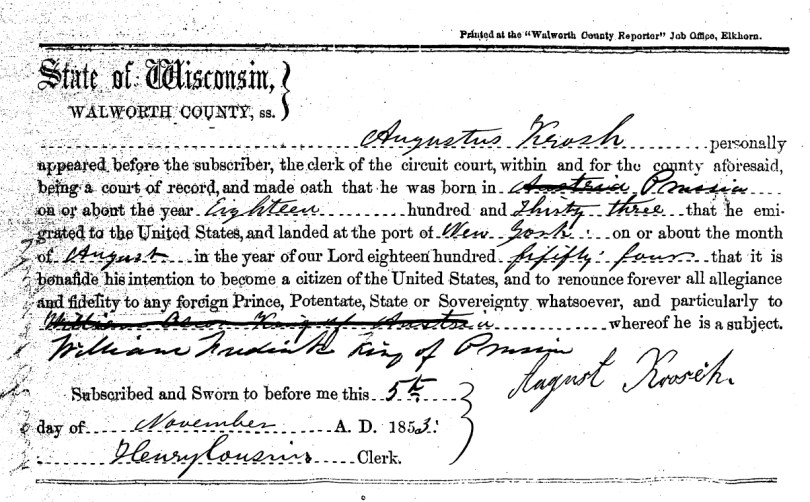 Printed at the "Walworth County Reporter" Job Office, Elkhorn.
State of Wisconsin,
WALWORTH COUNTY, ss.
Augustus Krosh personally
appeared before the subscriber, the clerk of the circuit court, within and for the county aforesaid,
being a court of record, and made oath that he was born in Austria Prussia
on or about the year Eighteen hundred and Thirty three that he emi-
grated to the United States, and landed at the port of New York on or about the month
of August in the year of our Lord eighteen hundred fififty four that it is
bonafide his intention to become a citizen of the United States, and to renounce forever all allegiance
and fidelity to any foreign Prince, Potentate, State or Sovereignty whatsoever, and particularly to
King of Austria whereof he is a subject.
William Fredrick King of Prussia
August Kroseh.
Subscribed and Sworn to before me this 5th
day of November A. D. 1853.
Henry Cousins Clerk.